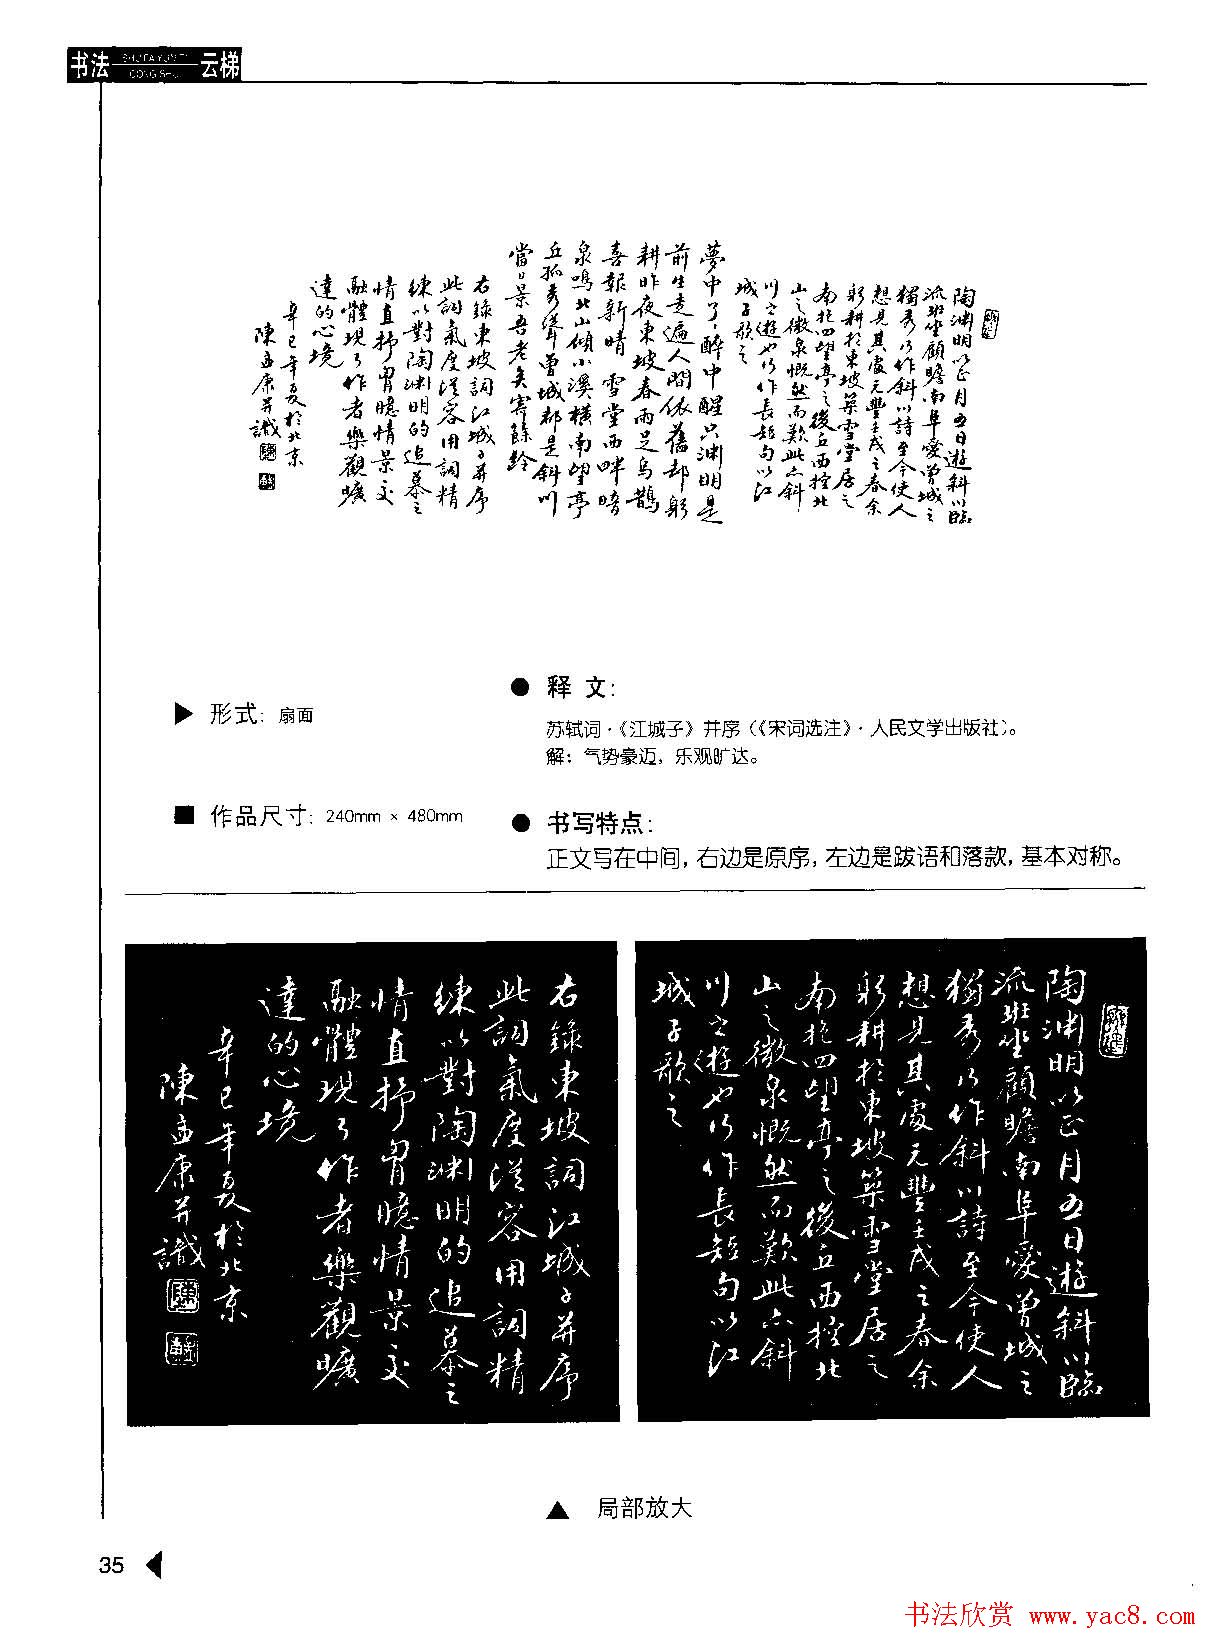 书法 云梯
陶渊明以正月五日遊斜川臨
流班坐顧瞻南阜愛曾城之
獨秀乃作斜川詩至今使人
想見其處元豐壬戌之春余
躬耕於東坡築雪堂居之
南挹四望亭之後丘西控北
山之微泉慨然而歎此亦斜
川之遊也乃作長短句以江
城子歌之
夢中了了醉中醒只渊明是
前生走遍人間依舊却躬
耕昨夜東坡春雨足烏鵲
喜報新晴雪堂西畔暗
泉鳴北山傾小溪横南望亭
丘孤秀聳曾城都是斜川
當日景吾老矣寄餘齡
右錄東坡詞江城子并序
此詞氣度從容用詞精
練以對陶渊明的追慕之
情直抒胃臆情景交
融體現了作者樂觀曠
達的心境
辛巳年夏於北京
陳孟康并識
▶ 形式: 扇面
■ 作品尺寸: 240mm × 480mm
● 释 文:
苏轼词·《江城子》并序（《宋词选注》·人民文学出版社）。
解: 气势豪迈，乐观旷达。
● 书写特点:
正文写在中间, 右边是原序, 左边是跋语和落款, 基本对称。
陶渊明以正月五日遊斜川臨
流班坐顧瞻南阜愛曾城之
獨秀乃作斜川詩至今使人
想見其處元豐壬戌之春余
躬耕於東坡築雪堂居之
南挹四望亭之後丘西控北
山之微泉慨然而歎此亦斜
川之遊也乃作長短句以江
城子歌之
右錄東坡詞江城子并序
此詞氣度從容用詞精
練以對陶渊明的追慕之
情直抒胃臆情景交
融體現了作者樂觀曠
達的心境
辛巳年夏於北京
陳孟康并識
▲ 局部放大
35
书法欣赏 www.yac8.com